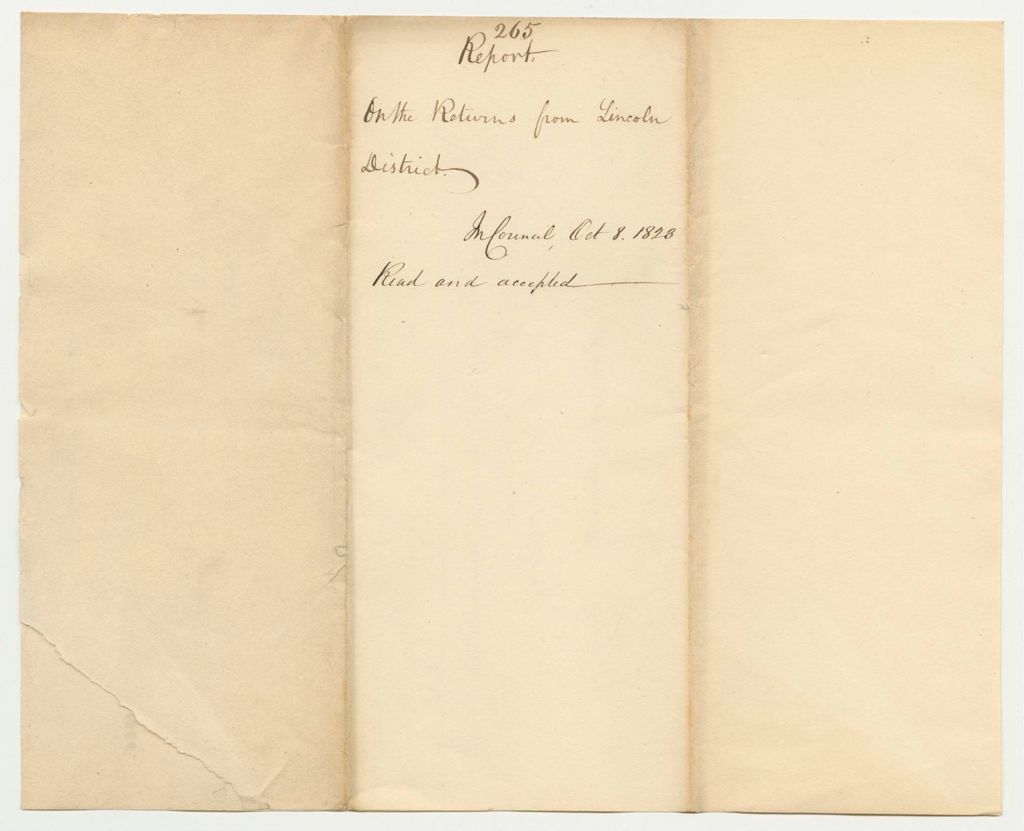 265
Report.
On the Returns from Lincoln
District.
In Council, Oct 8. 1823
Read and accepted